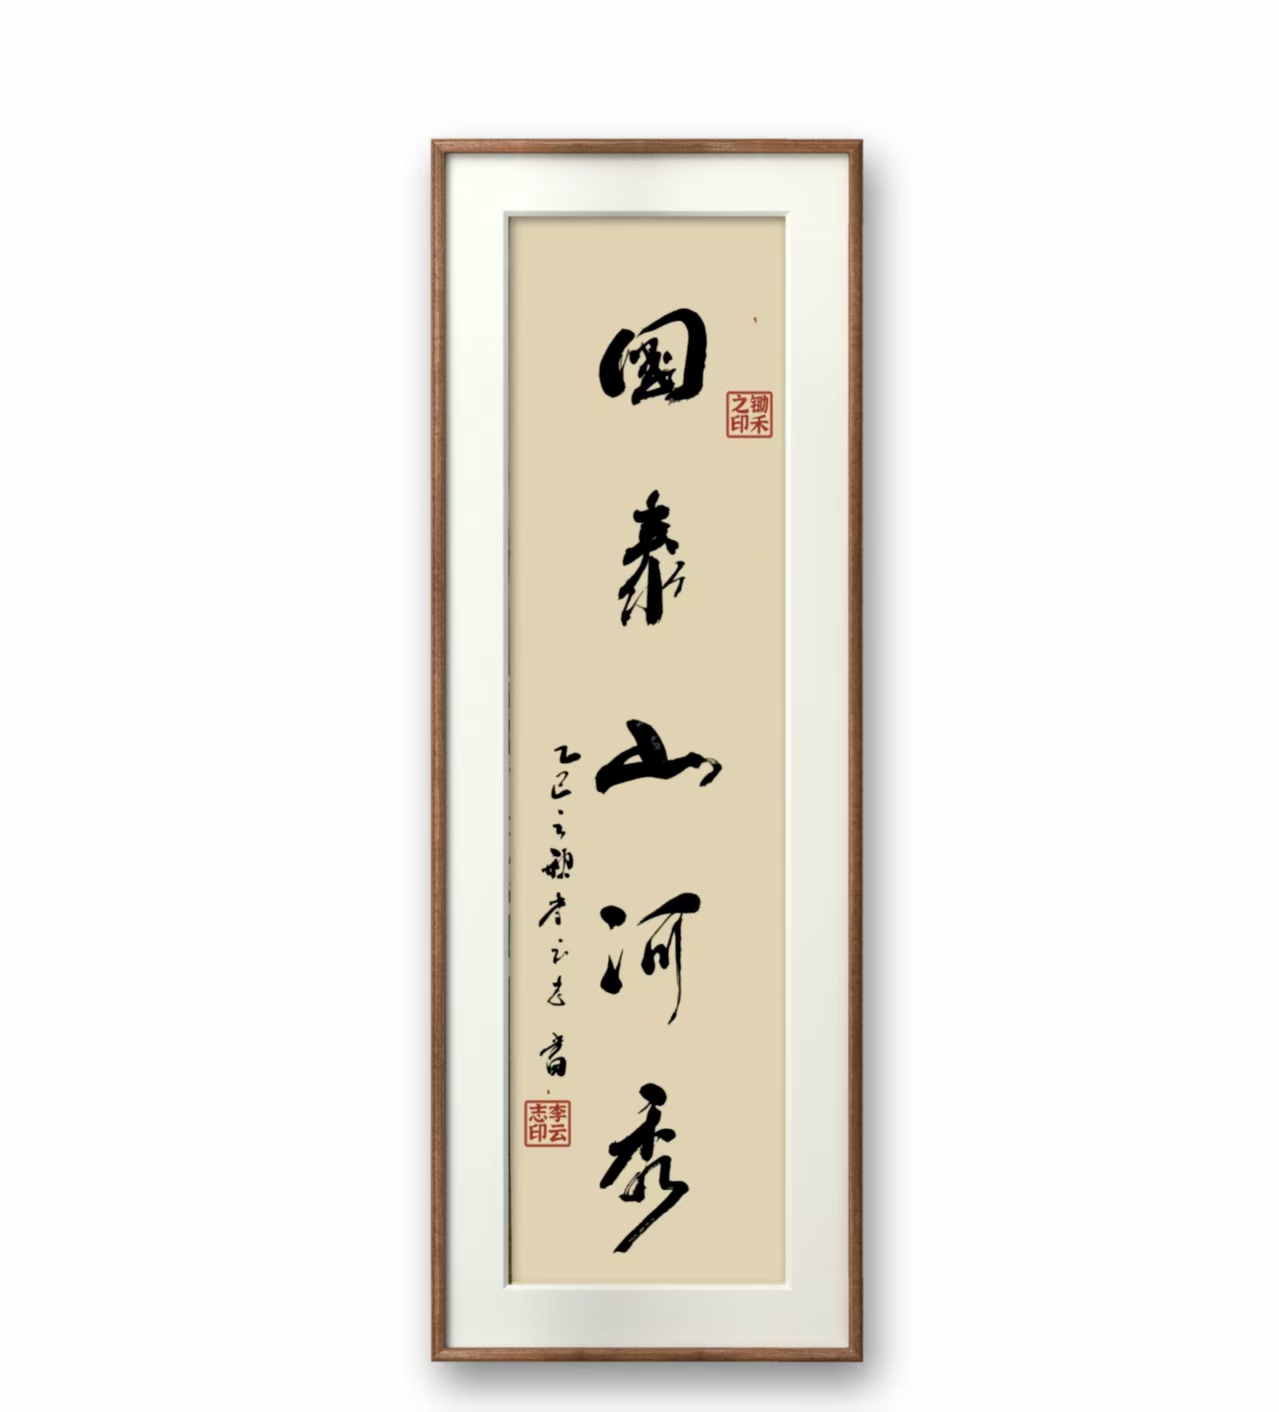 國泰山河秀
锄禾之印
乙巳之秋 李云志 書
李云志印